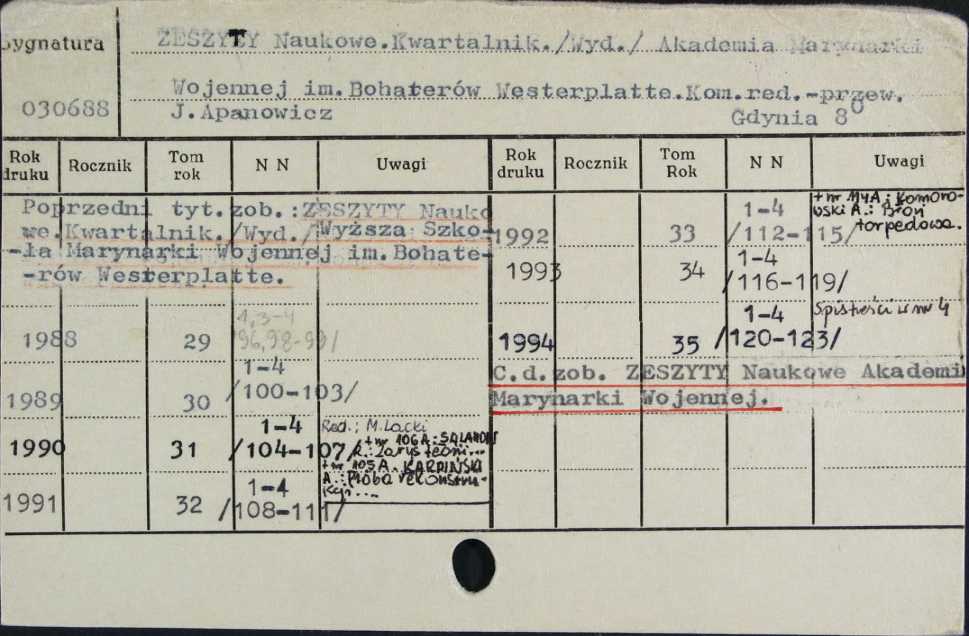 Sygnatura
ZESZYTY Naukowe.Kwartalnik./Wyd./ Akademia Marynarki
Wojennej im.Bohaterów Westerplatte.Kom.red.-przew.
030688 J.Apanowicz Gdynia 8°
Rok druku Rocznik Tom rok N N Uwagi Rok druku Rocznik Tom Rok N N Uwagi
Poprzedni tyt.zob.:ZESZYTY Nauko
we.Kwartalnik./Wyd./Wyższa Szko-
-ła Marynarki Wojennej im.Bohate-
-rów Westerplatte.
1988 29 1,3-4
/96,98-99/
1989 30 1-4
/100-103/
1990 31 1-4
/104-107/
Red.: M.Lacki
+nr 106A:
R.: Zarys teorii...
+nr 105A. KARPIŃSKI
A.: Próba rekonstru-
kcji....
1991 32 1-4
/108-111/
1992 33 1-4
/112-115/
+nr 114A: Komoro-
wski A.: Broń
torpedowa.
1993 34 1-4
/116-119/
1994 35 1-4
/120-123/
Spis treści w nr 4
C.d.zob. ZESZYTY Naukowe Akademi
Marynarki Wojennej.